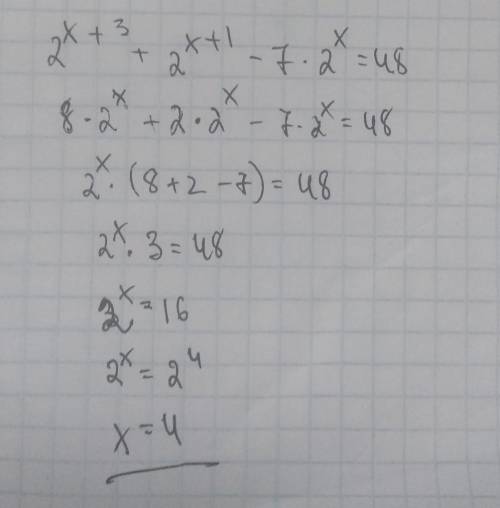 2^{x+3} + 2^{x+1} - 7 · 2^x = 48
8 · 2^x + 2 · 2^x - 7 · 2^x = 48
2^x · (8 + 2 - 7) = 48
2^x · 3 = 48
2^x = 16
2^x = 2^4
x = 4